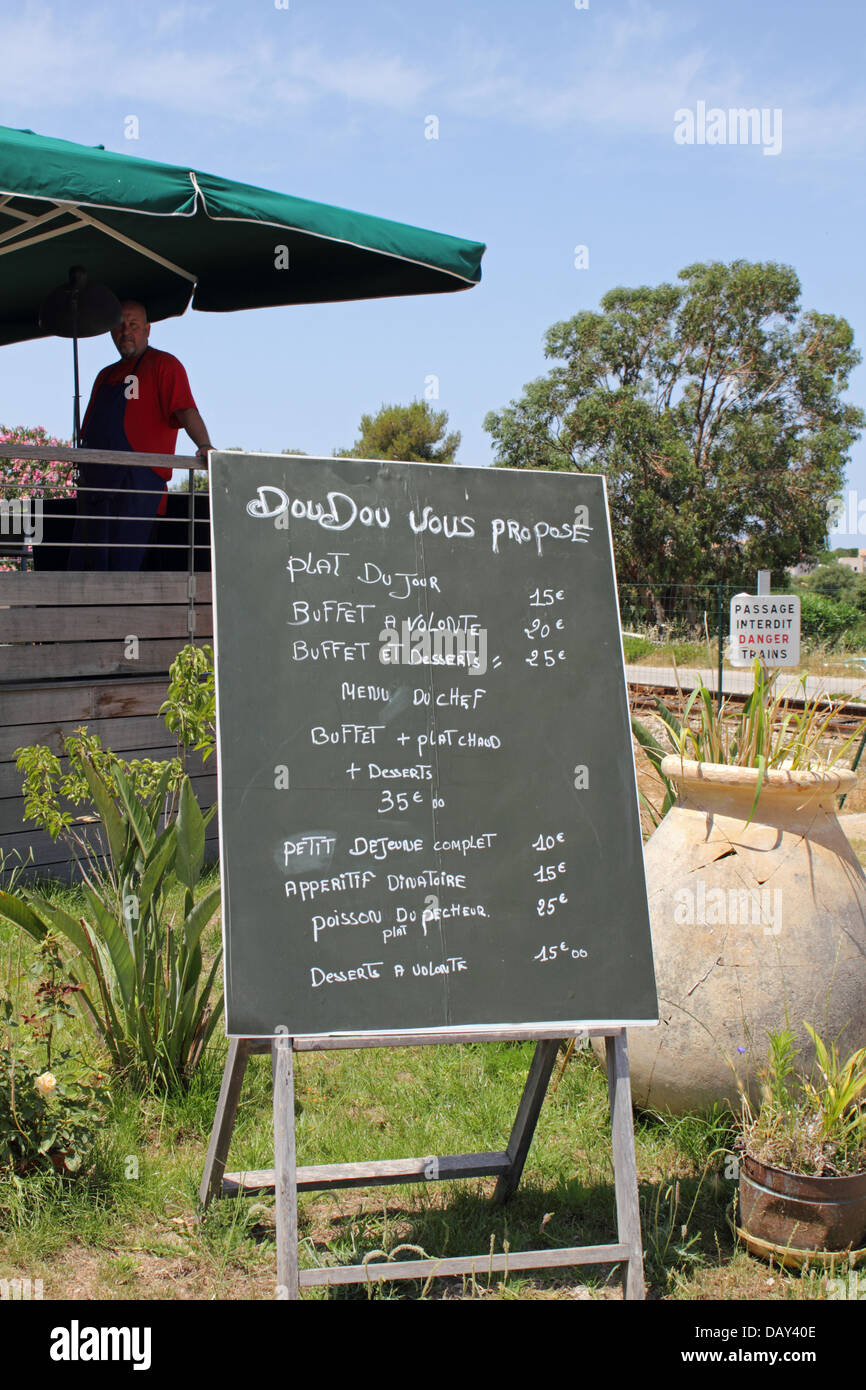 DouDou vous propose
PLAT DU JOUR 15€
BUFFET A VOLONTE 20€
BUFFET ET DESSERTS = 25€
MENU DU CHEF
BUFFET + PLAT CHAUD
+ DESSERTS
35€00
PETIT DEJEUNE COMPLET 10€
APPERITIF DINATOIRE 15€
POISSON DU PECHEUR. 25€
PLAT
DESSERTS A VOLONTE 15€00
PASSAGE
INTERDIT
DANGER
TRAINS
alamy
Image ID: DAY40E
www.alamy.com